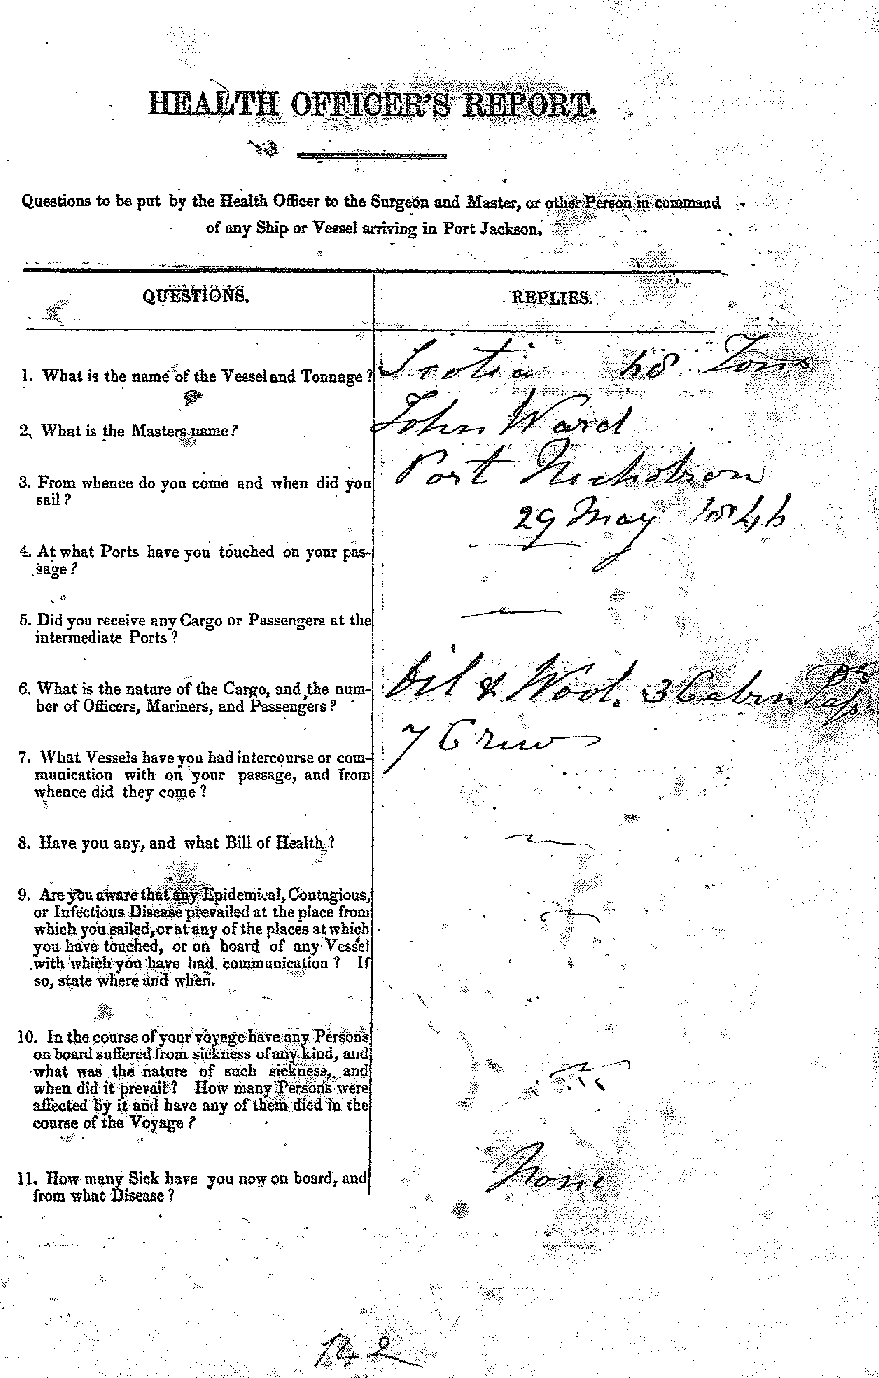 HEALTH OFFICER'S REPORT.
Questions to be put by the Health Officer to the Surgeon and Master, or other Person in command
of any Ship or Vessel arriving in Port Jackson.
QUESTIONS.
REPLIES.
1. What is the name of the Vessel and Tonnage?
Scotia 68 Tons
2. What is the Masters name?
John Ward
3. From whence do you come and when did you
sail?
Port Nicholson
29 May 1846
4. At what Ports have you touched on your pas-
sage?
5. Did you receive any Cargo or Passengers at the
intermediate Ports?
6. What is the nature of the Cargo, and the num-
ber of Officers, Mariners, and Passengers?
Oil & Wool. 3 Cabin
7 Crew
7. What Vessels have you had intercourse or com-
munication with on your passage, and from
whence did they come?
8. Have you any, and what Bill of Health?
9. Are you aware that any Epidemical, Contagious,
or Infectious Disease prevailed at the place from
which you sailed, or at any of the places at which
you have touched, or on board of any Vessel
with which you have had communication? If
so, state where and when.
10. In the course of your voyage have any Persons
on board suffered from sickness of any kind, and
what was the nature of such sickness, and
when did it prevail? How many Persons were
affected by it and have any of them died in the
course of the Voyage?
11. How many Sick have you now on board, and
from what Disease?
None
142